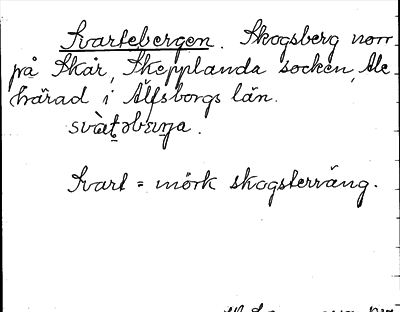 Svartebergen. Skogsberg norr
på Skår, Skepplanda socken, Ale
härad i Älfsborgs län.
Svart = mörk skogsterräng.